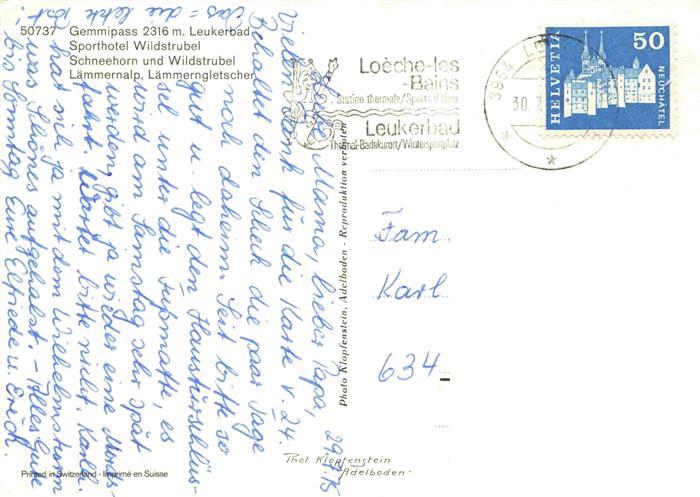 50737 Gemmipass 2316 m. Leukerbad
Sporthotel Wildstrubel
Schneehorn und Wildstrubel
Lämmernalp, Lämmerngletscher
29.7.75
Liebe Mama, lieber Papa,
Vielen Dank für die Karte v. 24.
Behaltet den Scheck die paar Tage
noch daheim. Seit bitte so
gut u. legt den Haustürschlüs-
sel unter die Fußmatte, es
wird am Samstag sehr spät
werden, gibt ja wieder eine Mords-
fahrt. Wartet bitte nicht. Karla
hat sich ja mit dem Wilhelmsturm
was Schönes aufgehalst. - Alles Gute
bis Sonntag Eure Elfriede u. Erich.
Das = die letzte Post!
Photo Klopfenstein, Adelboden - Reproduktion verboten
Loèche-les
-Bains
Station thermale/Sports d'hiver
Leukerbad
Thermal-Badekurort/Wintersportplatz
3954
30.7
HELVETIA
50
NEUCHÂTEL
Fam
Karl
634
Phot Klopfenstein
Adelboden
Printed in Switzerland - Imprimé en Suisse